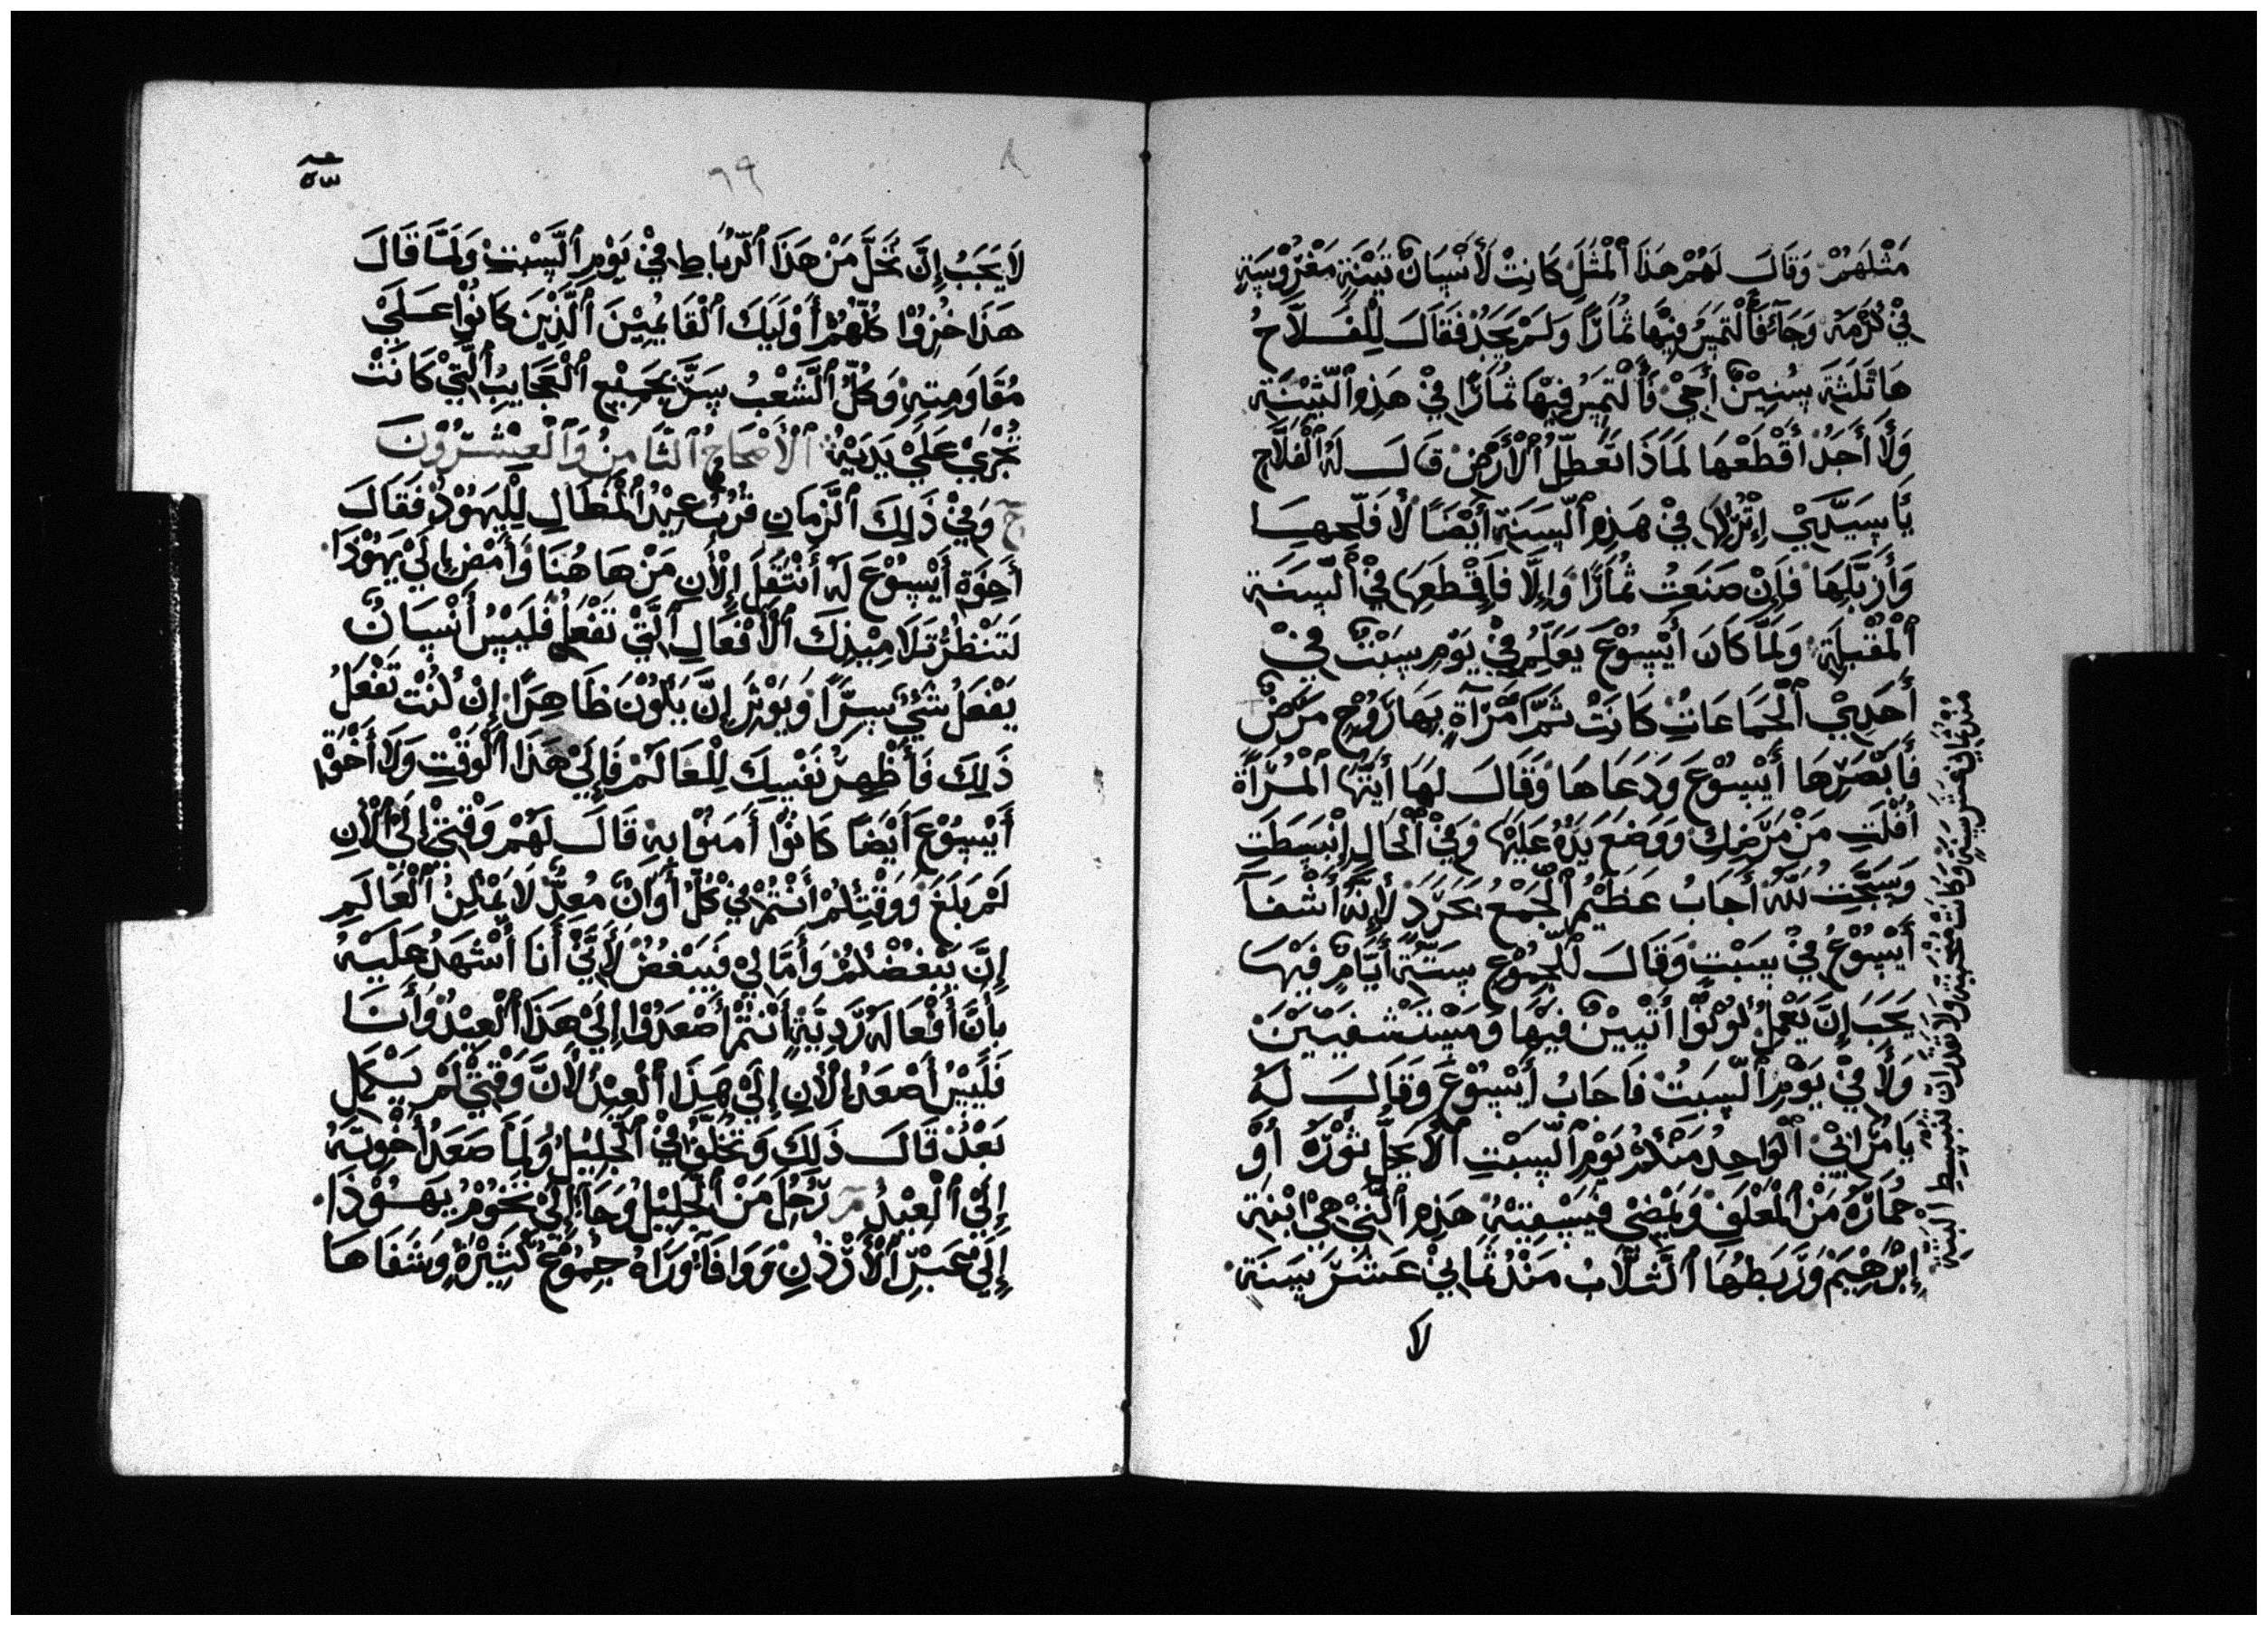 مثلهم وقال لهم هذا المثل كانت لأنسان تينة مغروسة
في كرمه وجاء فألتمس فيها ثمارًا ولم يجد فقال للفلاح
ها ثلثة سنين أجي فألتمس فيها ثمارًا في هذه التينة
ولا أجد أقطعها لماذا تعطل الأرض قال له الفلاح
يا سيدي إتركها في هذه السنة أيضًا لأفلحها
وأزبلها فإن صنعت ثمارًا وإلا فإقطعها في السنة
المقبلة ولما كان أيسوع يعلم في يوم سبت في
أحدي الجماعات كانت ثم امرأة بها روح مرض
فأبصرها أيسوع ودعاها وقال لها أيتها المرأة
أفلت من مرضك ووضع يده عليها وفي الحال إنبسطت
وسبحت لله أجاب عظيم الجمع بحرد لإنه أشفا
أيسوع في سبت وقال للجموع ستة أيام فيها
يجب إن يعمل كونوا أتيين فيها ومستشفيين
ولا في يوم السبت فاجاب أيسوع وقال له
يا مراني الواحد منكم يوم السبت ألا يحل ثوره أو
حماره من المعلف ويمضي فيسقيه هذه التي هي ابنة
إبرهيم وربطها الثلاب منذ ثماني عشر سنة
منذ ثماني عشر سنة وكانت منحنية ولا تقدر ان تنبسط البتة
لا
٦٩
لا يجب إن تحل من هذا الرباط في يوم السبت ولما قال
هذا خزوا كلهم أوليك القايمين الذين كانوا علي
مقاومته وكل الشعب سر بجميع العجايب التي كانت
تجري علي يديه الأصحاح الثامن والعشرون
ح وفي ذلك الزمان قرب عيد المظال لليهود فقال
أخوة أيسوع له أنتقل إلأن من هاهنا وأمض إلي يهوذا
لتنظر تلاميذك الأفعال التي تفعل فليس أنسان
يفعل شي سرًا ويوثر إن يكون ظاهرًا إن كنت تفعل
ذلك فأظهر نفسك للعالم فإلي هذا الوقت ولا أخوة
أيسوع أيضًا كانوا أمنوا به قال لهم وقتي إلي الأن
لم بلغ ووقتكم أنتم في كل أوان معد لا يمكن العالم
إن يبغضكم وأما لي فيبغض لأني أنا أشهد عليه
بأن أفعاله ردية أنتم أصعدوا إلي هذا العيد وأنا
فليس أصعد إلأن إلي هذا العيد لأن وقتي لم يكمل
بعد قال ذلك وتخلف في الجليل ولما صعد أخوته
إلي العيد مر رحل من الجليل وجا إلي تخوم يهوذا
إلي عبر الأردن ووافا وراه جموع كثيرة وشفاها